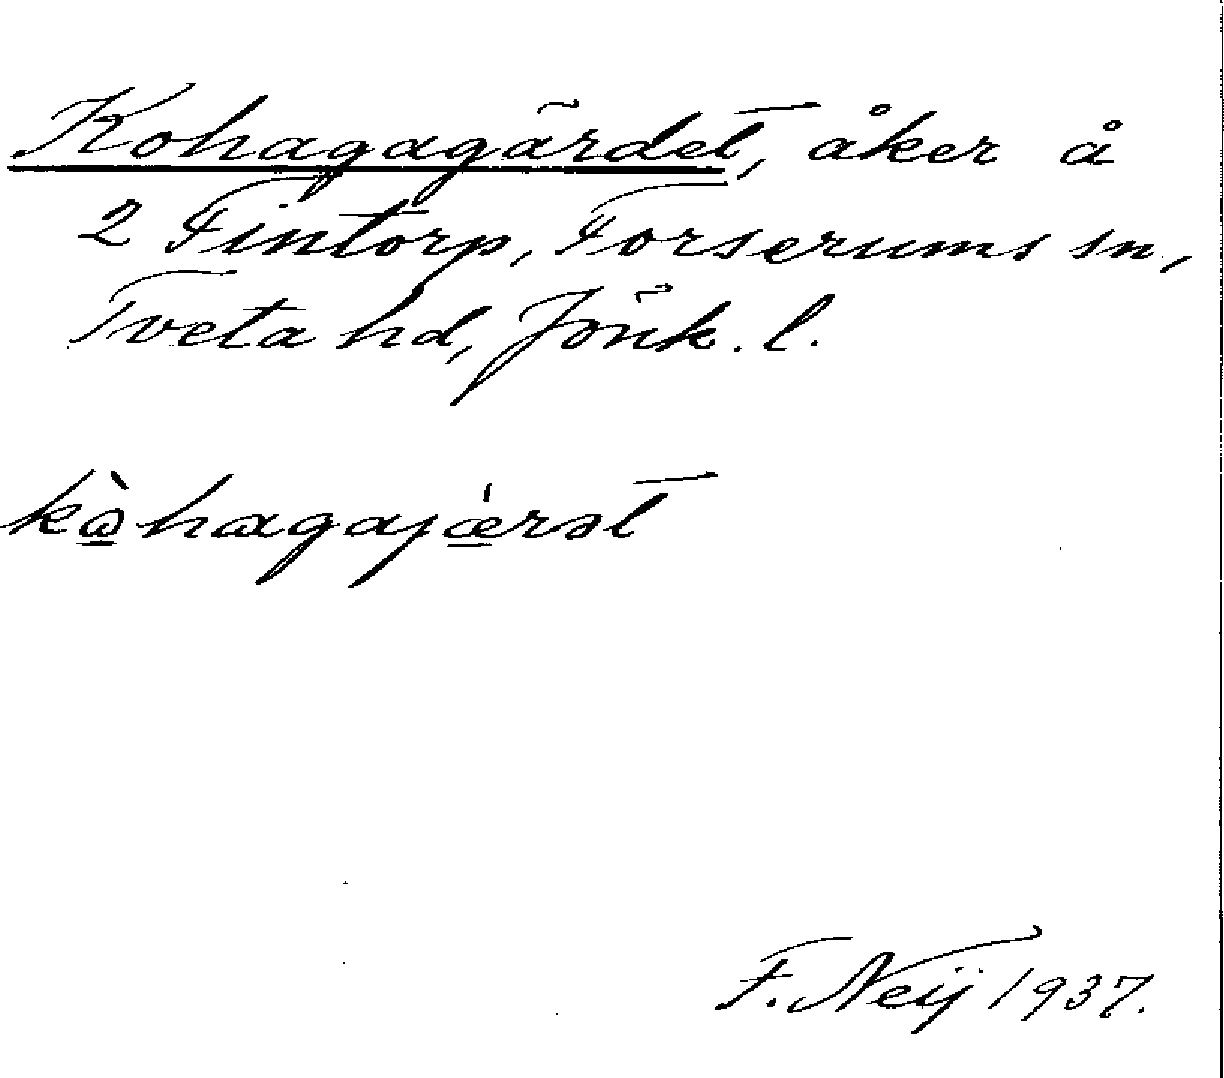 Kohagagärdet, åker å
2 Fintorp, Forserums sn,
Tveta hd, Jönk. l.
F. Neij 1937.